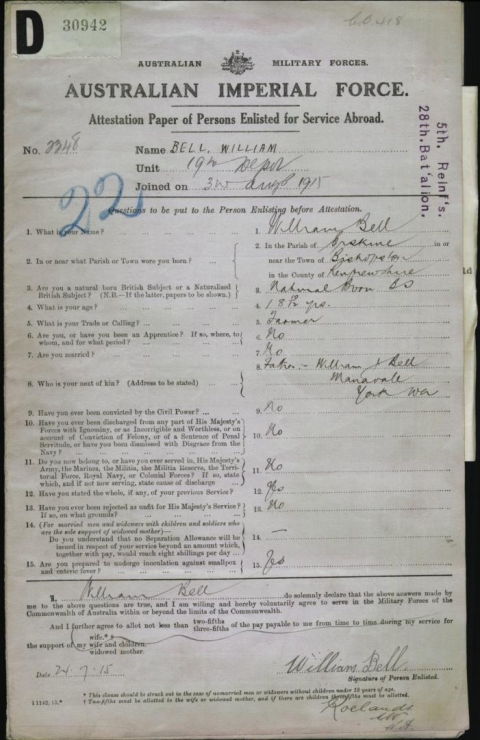 D
30942
AUSTRALIAN MILITARY FORCES.
AUSTRALIAN IMPERIAL FORCE.
Attestation Paper of Persons Enlisted for Service Abroad.
No. 2248
Name BELL, WILLIAM
Unit 19th Depot
Joined on 3rd Augst 1915
5th. Reinf's.
28th. Bat'alion.
22
Questions to be put to the Person Enlisting before Attestation.
1. What is your Name? ... 1. William Bell
2. In or near what Parish or Town were you born? ... 2. In the Parish of Erskine in or
near the Town of Bishopston
in the County of Renfrewshire
3. Are you a natural born British Subject or a Naturalized
British Subject? (N.B.—If the latter, papers to be shown.) 3. Natural Born BS
4. What is your age? ... 4. 18 yrs.
5. What is your Trade or Calling? ... 5. Farmer
6. Are you, or have you been an Apprentice? If so, where, to
whom, and for what period? ... 6. No
7. Are you married? ... 7. No
8. Who is your next of kin? (Address to be stated) ... 8. Father - William Bell
Manavale
York WA
9. Have you ever been convicted by the Civil Power? ... 9. No
10. Have you ever been discharged from any part of His Majesty's
Forces with Ignominy, or as Incorrigible and Worthless, or on
account of Conviction of Felony, or of a Sentence of Penal
Servitude, or have you been dismissed with Disgrace from the
Navy? ... 10. No
11. Do you now belong to, or have you ever served in, His Majesty's
Army, the Marines, the Militia, the Militia Reserve, the Terri-
torial Force, Royal Navy, or Colonial Forces? If so, state
which, and if not now serving, state cause of discharge ... 11. No
12. Have you stated the whole, if any, of your previous Service? 12. Yes
13. Have you ever been rejected as unfit for His Majesty's Service?
If so, on what grounds? ... 13. No
14. (For married men and widowers with children and soldiers who
are the sole support of widowed mother)—
Do you understand that no Separation Allowance will be
issued in respect of your service beyond an amount which,
together with pay, would reach eight shillings per day ... 14. —
15. Are you prepared to undergo inoculation against smallpox
and enteric fever? ... 15. Yes
I, William Bell do solemnly declare that the above answers made by
me to the above questions are true, and I am willing and hereby voluntarily agree to serve in the Military Forces of the
Commonwealth of Australia within or beyond the limits of the Commonwealth.
And I further agree to allot not less than two-fifths
three-fifths of the pay payable to me from time to time during my service for
the support of my wife.*
wife and children.
widowed mother.
Date 24-7-15
William Bell.
Signature of Person Enlisted.
* This clause should be struck out in the case of unmarried men or widowers without children under 18 years of age.
† Two-fifths must be allotted to the wife or widowed mother, and if there are children three-fifths must be allotted.
Roelands
WA